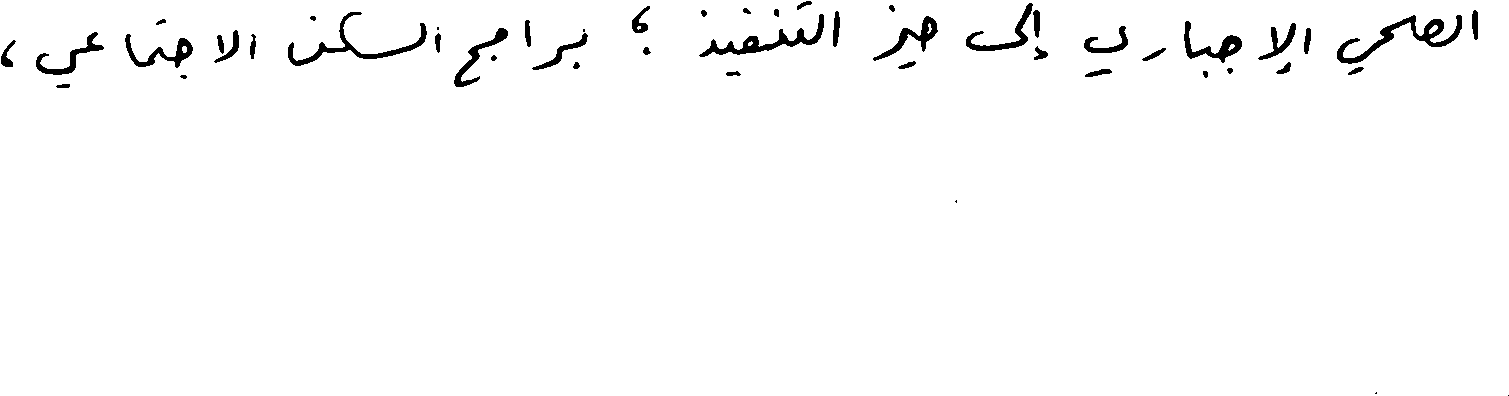 الصحي الإجباري إلى حيز التنفيذ ؛ برامج السكن الاجتماعي ،